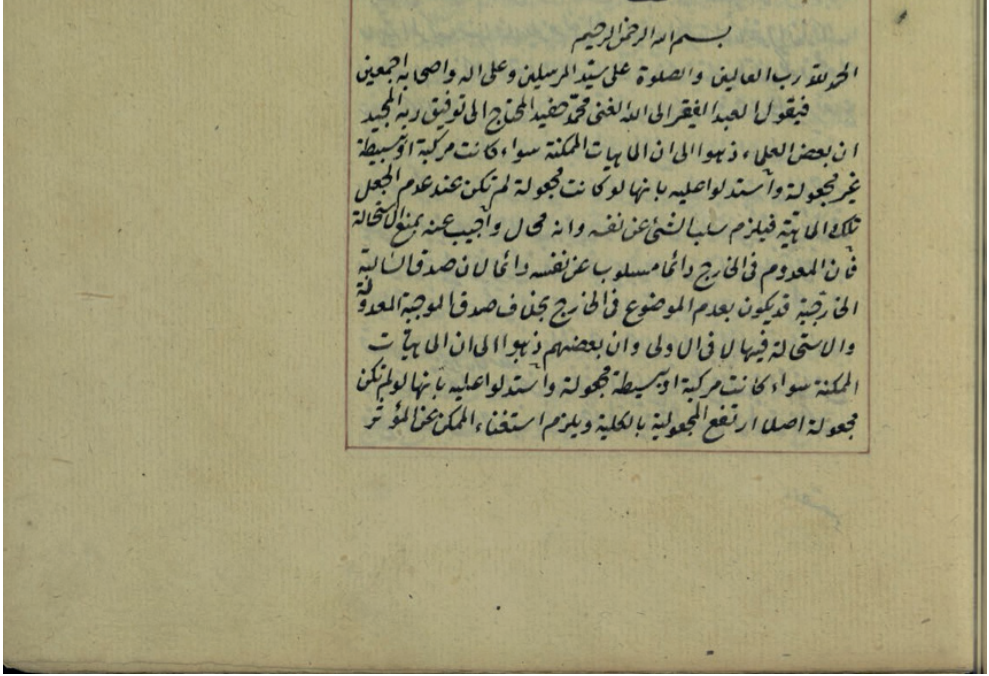 بسم الله الرحمن الرحيم
الحمد لله رب العالمين والصلوة على سيد المرسلين وعلى اله واصحابه اجمعين
فيقول العبد الفقير الى الله الغنى محمد حفيد المحتاج الى توفيق ربه المجيد
ان بعض العلماء ذهبوا الى ان الماهيات الممكنة سواء كانت مركبة او بسيطة
غير مجعولة واستدلوا عليه بانها لو كانت مجعولة لم تكن عند عدم الجعل
تلك الماهية فيلزم سلب الشئ عن نفسه وانه محال واجيب عنه بمنع الاستحالة
فان المعدوم فى الخارج دائما مسلوب عن نفسه دائما لان صدق السالبة
الخارجية قد يكون بعدم الموضوع فى الخارج بخلاف صدق الموجبة المعدولة
والاستحالة فيها لا فى الاولى وان بعضهم ذهبوا الى ان الماهيات
الممكنة سواء كانت مركبة او بسيطة مجعولة واستدلوا عليه بانها لو لم تكن
مجعولة اصلا ارتفع المجعولية بالكلية ويلزم استغناء الممكن عن المؤثر